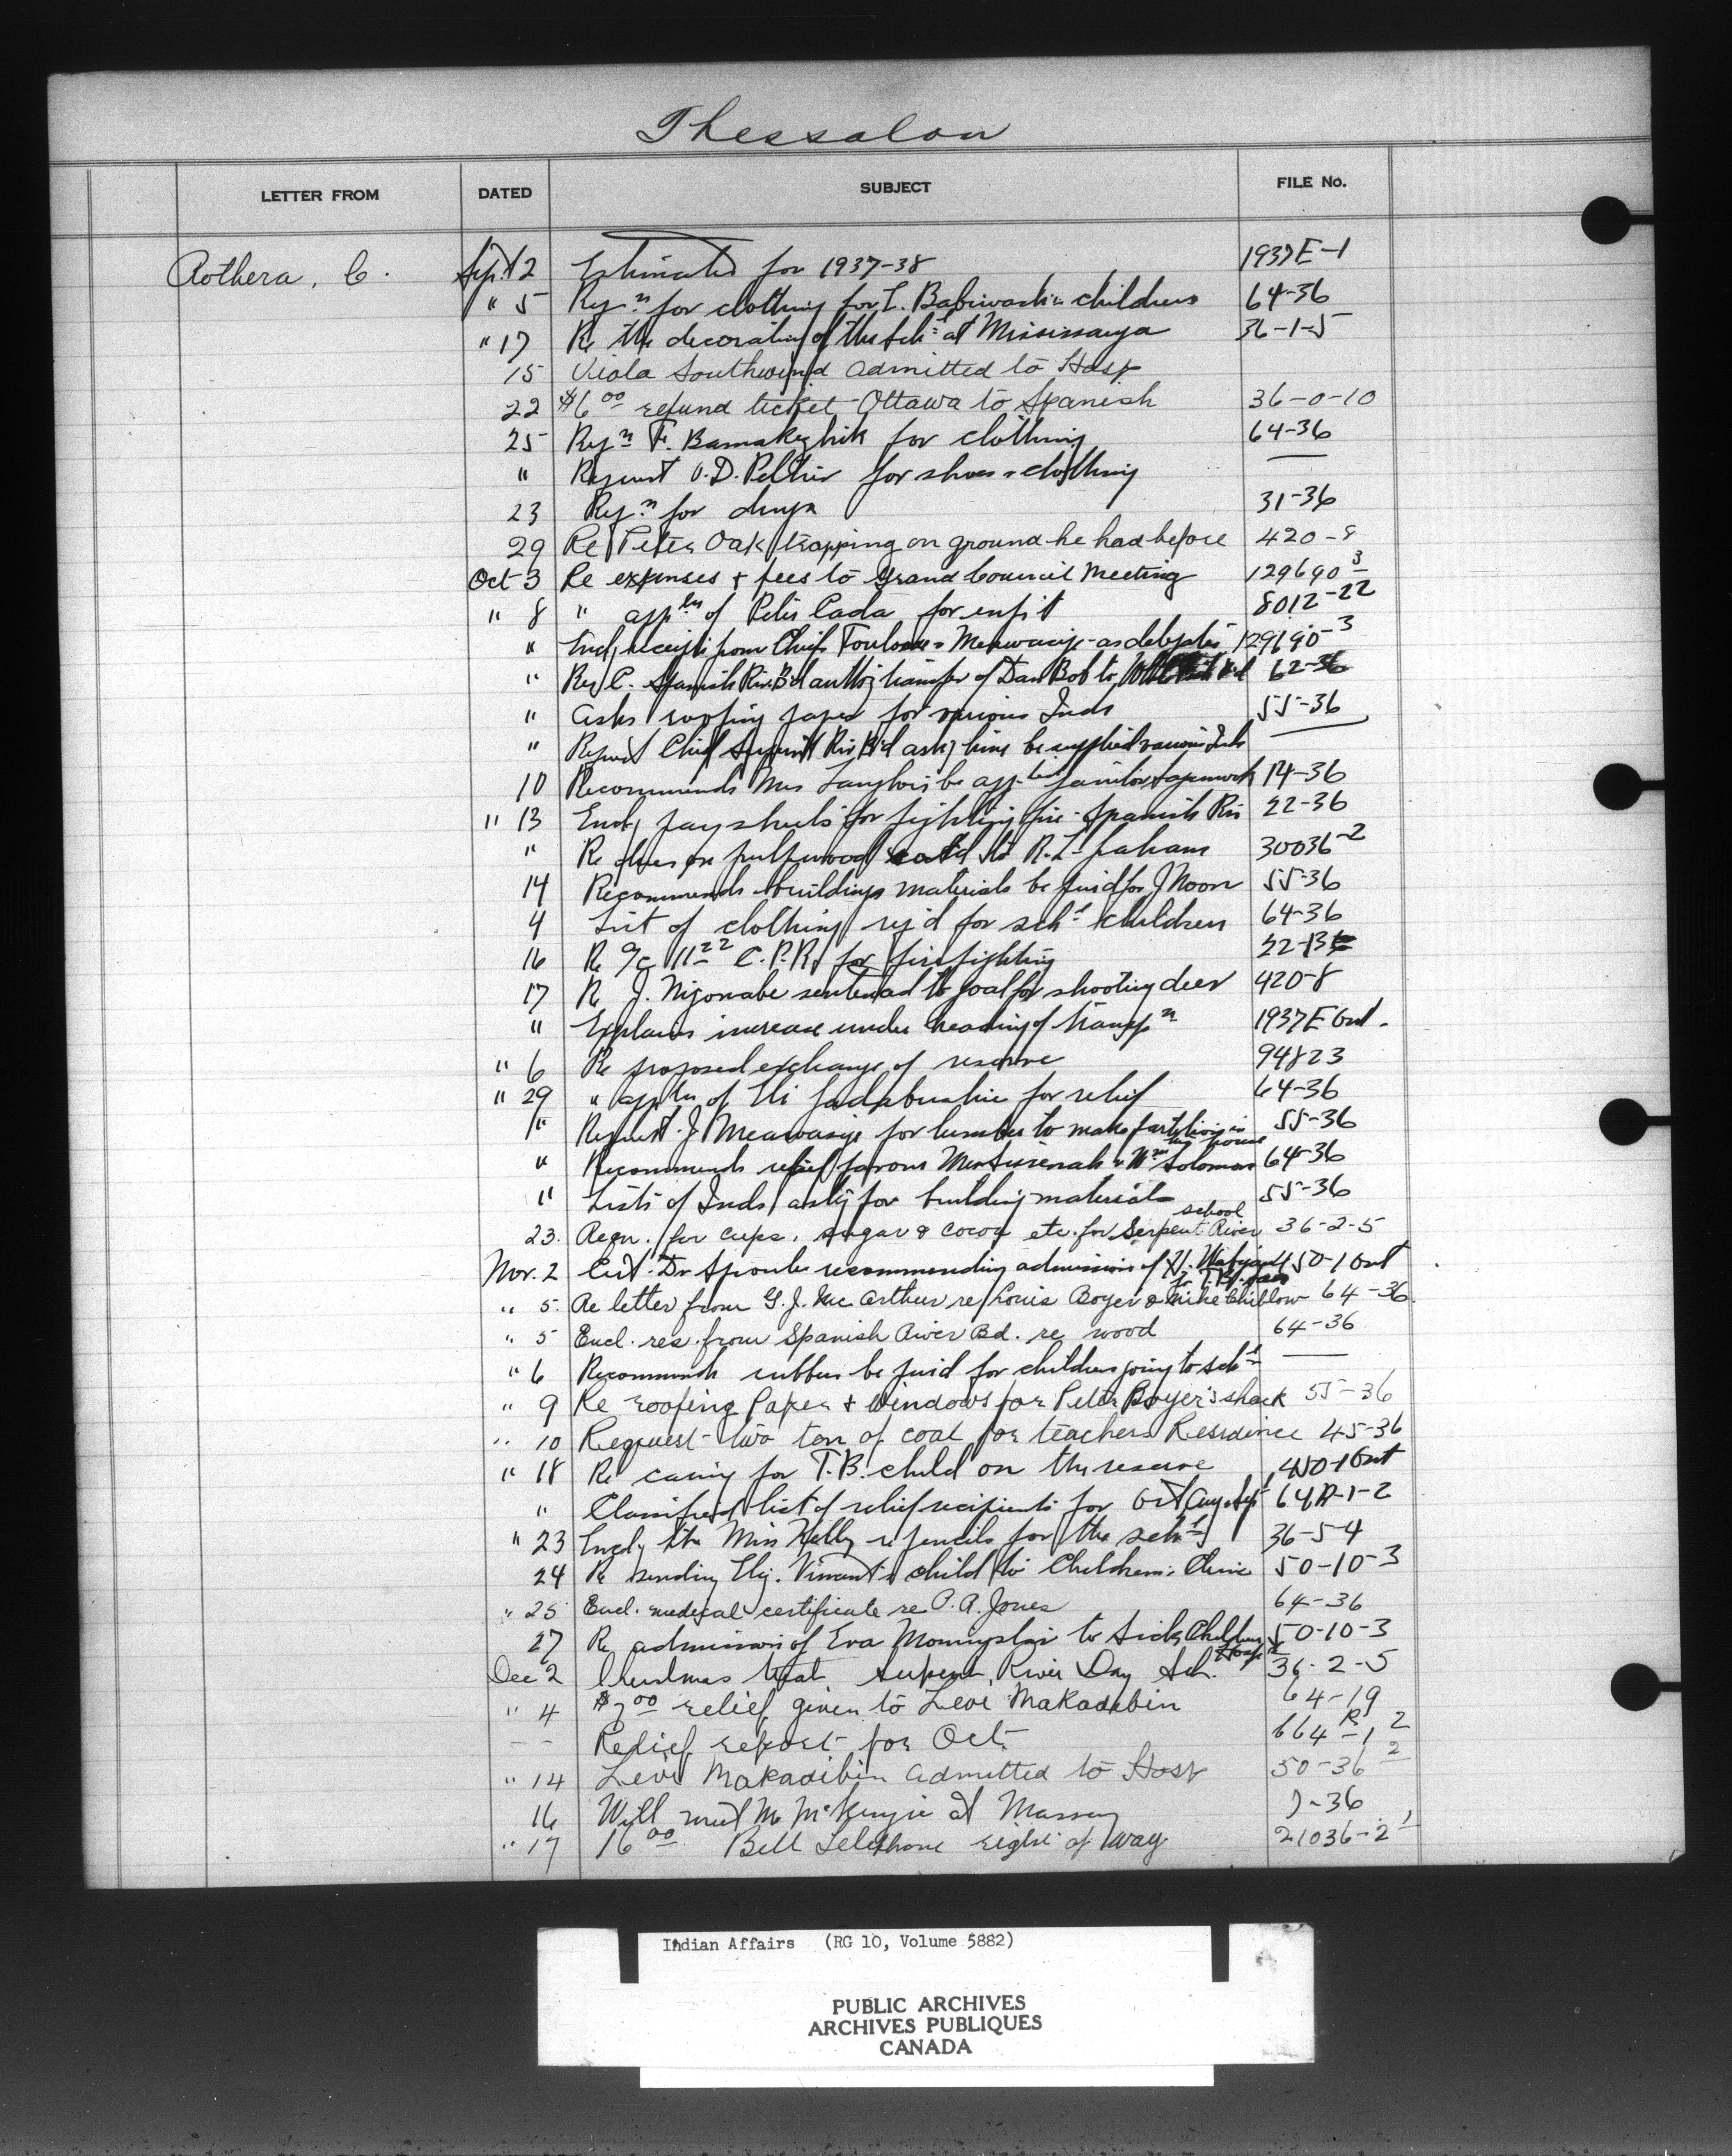 Thessalon
LETTER FROM DATED SUBJECT FILE No.
Rothera, C. Sept 2 Estimates for 1937-38 1937E-1
" 5 Reqn for clothing for children 64-36
" 17 Re the decorating of the Schl at Mississauga 36-1-5
15 Viola Southwind admitted to Hosp
22 $6 00 refund ticket Ottawa to Spanish 36-0-10
25 Reqn F. Bamakezhik for clothing 64-36
" Request O.D. Peltier for shoes & clothing —
23 Reqn for drugs 31-36
29 Re Peter Oak trapping on ground he had before 420-8
Oct 3 Re expenses & fees to Grand Council Meeting 129690-3
" 8 " appln of Peter Cada for enfrt 8012-22
" Encl receipts from Chiefs & Meawasige as delegates 129690-3
" Res C. Spanish Riv Bd authg transfer of Dan Bob to 62-36
" Asks roofing paper for various Inds 55-36
" Request Chief Serpent Riv Bd askg lime be supplied various Inds —
10 Recommends Mrs Langlois be appted janitor 14-36
" 13 Encl pay sheets for fighting fire - Spanish Riv 22-36
" Re dues on pulpwood sold to R.L. Graham 30036-2
14 Recommends buildings materials be furd for J Noon 55-36
4 List of clothing reqd for schl children 64-36
16 Re a/c 11 22 C.P.R. for fire fighting 22-
17 Re J. Nigonabe sentenced to goal for shooting deer 420-8
" Explains increase under heading of transpn 1937E Ont.
" 6 Re proposed exchange of reserve 94823
" 29 " appln of Eli for relief 64-36
" Request J Meawasige for lumber to make partitions in his house 55-36
" Recommends relief favour & Wm Solomon 64-36
" Lists of Inds askg for building materials 55-36
23. Reqn. for cups, sugar & cocoa etc. for Serpent River school 36-2-5
Nov. 2 Cert. Dr Sproule recommending admission of to T.B. san 450-1 Ont
" 5. Re letter from G. J. McArthur re Louis Boyer & Mike Chiblow 64-36.
" 5 Encl. res. from Spanish River Bd. re wood 64-36
" 6 Recommends rubbers be furd for children going to schl —
" 9 Re roofing Paper & Windows for Peter Boyer's shack 55-36
" 10 Request two ton of coal for teachers Residence 45-36
" 18 Re caring for T.B. child on the reserve 450-1 Ont
" Classified list of relief recipients for Aug & Sept 64R-1-2
" 23 Encl ltr Miss Kelly re pencils for the schl 36-5-4
24 Re sending Elij. Vincent's child to Childrens Clinic 50-10-3
" 25 Encl. medical certificate re P.A. Jones 64-36
27 Re admission of Eva to Sick Children Hosp 50-10-3
Dec 2 Christmas treat Serpent River Day Sch. 36-2-5
" 4 $7 00 relief given to Levi Makadebin 64-19
- - Relief report for Oct. 664 R-1 2
" 14 Levi Makadebin admitted to Hosp 50-36 2
16 Will meet Mr McKenzie at Massey 7-36
" 17 16 00 Bell Telephone right of way 21036-2 1
Indian Affairs (RG 10, Volume 5882)
PUBLIC ARCHIVES
ARCHIVES PUBLIQUES
CANADA